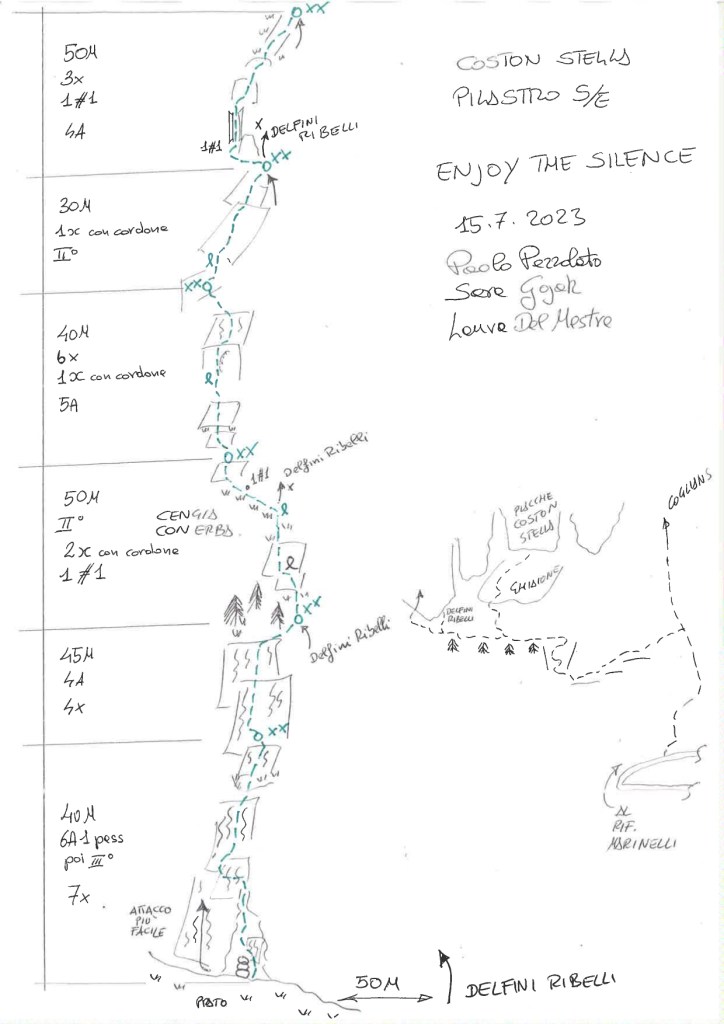 COSTON STELLA
PILASTRO S/E
ENJOY THE SILENCE
15.7.2023
Paolo Pezzolato
Sara Gojak
Laura Del Mestre
XX
50M
3x
1#1
4A
1#1
X
DELFINI
RIBELLI
XX
30M
1x con cordone
II°
XX
40M
6x
1x con cordone
5A
XX
1#1
X
Delfini Ribelli
50M
II°
2x con cordone
1#1
CENGIA
CON ERBA
XX
Delfini Ribelli
45M
4A
4x
XX
40M
6A 1 pess
poi III°
7x
ATTACCO
PIÙ
FACILE
PRATO
50M
DELFINI RIBELLI
PLACCHE
COSTON
STELLA
GHIAIONE
DELFINI
RIBELLI
COGLIANS
AL
RIF.
MARINELLI